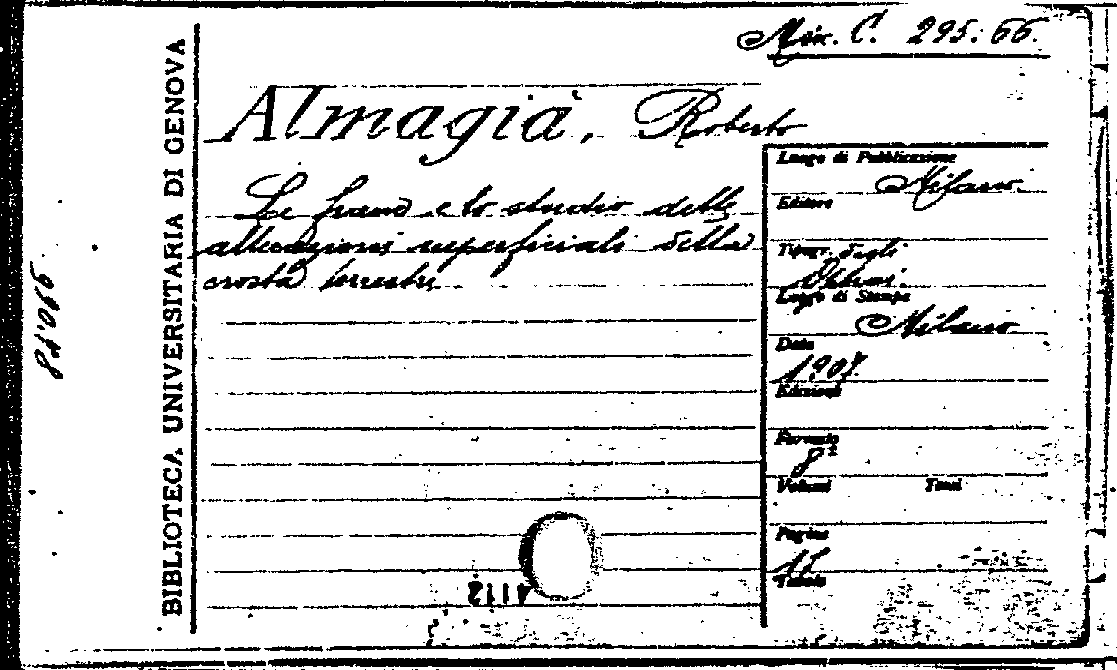 Misc. C. 295. 66.
BIBLIOTECA UNIVERSITARIA DI GENOVA
Almagià, Roberto
Le frane e lo studio delle
alterazioni superficiali della
crosta terrestre
Luogo di Pubblicazione
Milano.
Editore
Tipogr. degli
Operai.
Luogo di Stampa
Milano
Data
1907.
Edizioni
Formato
8°
Volumi Tomi
Pagine
Tabole
4112